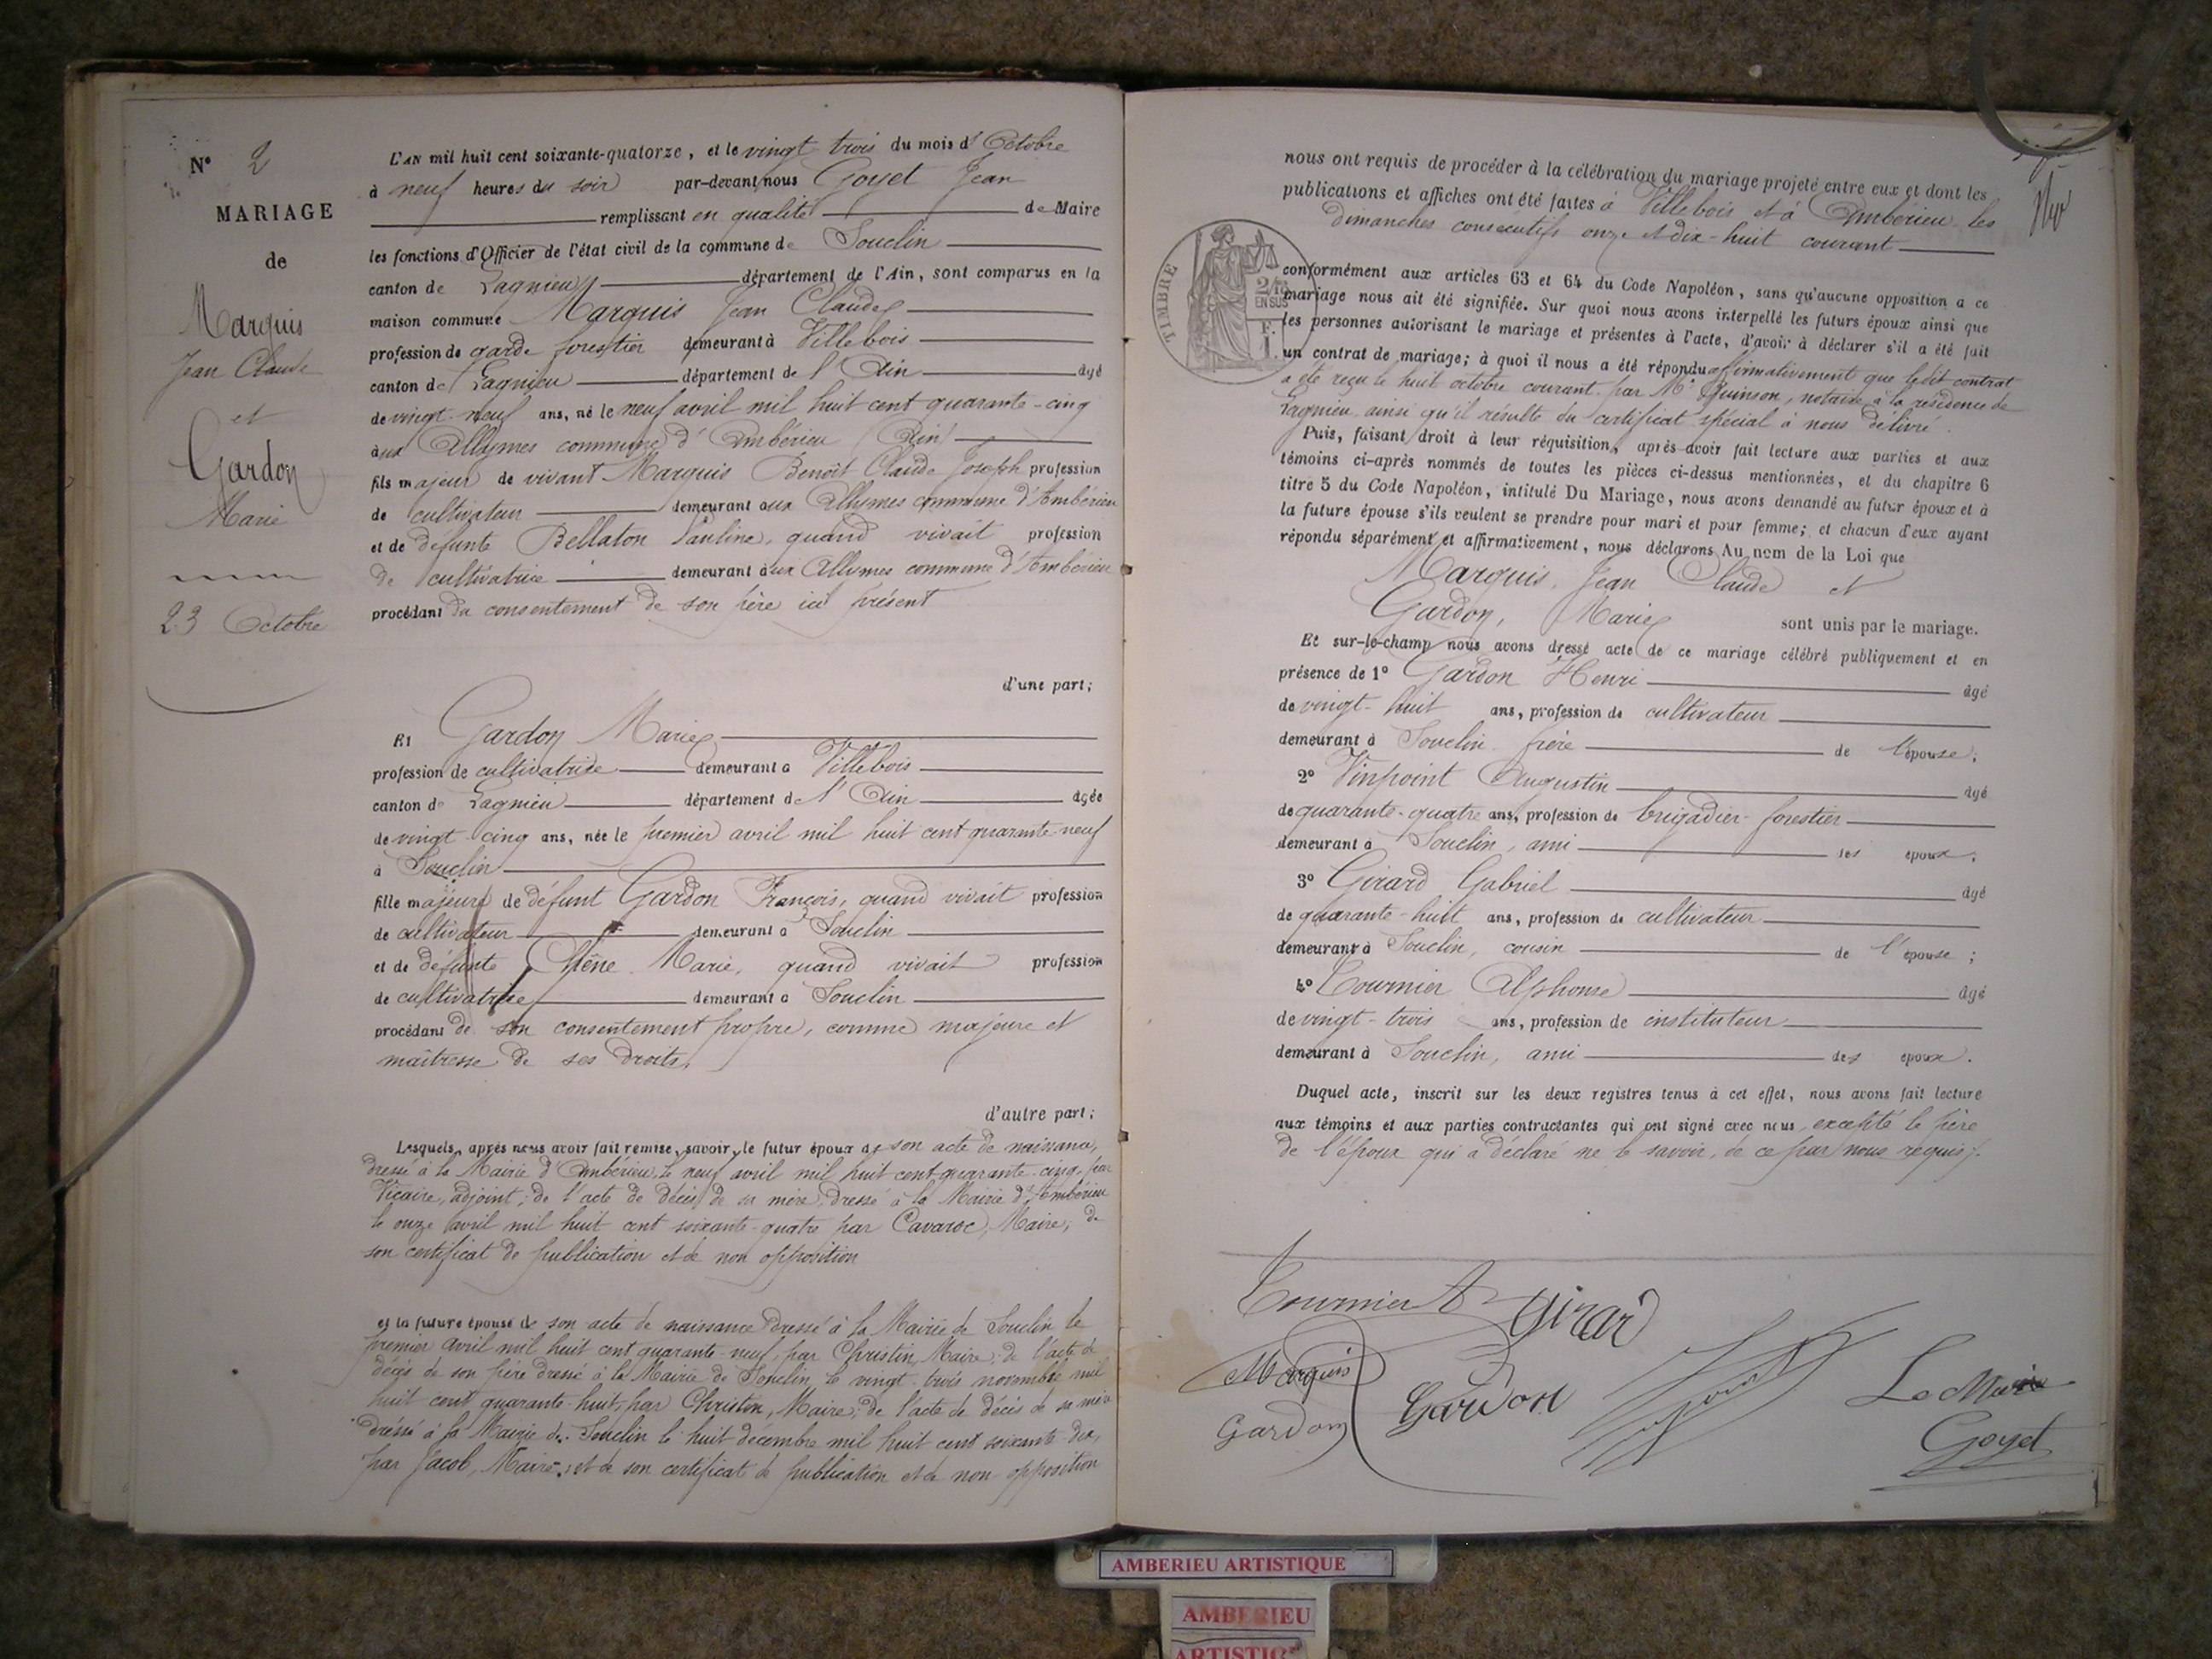 N° 2
MARIAGE
de
Marquis
Jean Claude
et
Gardon
Marie
23 Octobre
L'AN mil huit cent soixante-quatorze, et le vingt-trois du mois d' Octobre
à neuf heures du soir par-devant nous Goyet Jean
remplissant en qualité de Maire
les fonctions d'Officier de l'état civil de la commune de Souclin
canton de Lagnieu département de l'Ain, sont comparus en la
maison commune Marquis Jean Claude
profession de garde forestier demeurant à Villebois
canton de Lagnieu département de l'Ain âgé
de vingt-neuf ans, né le neuf avril mil huit cent quarante-cinq
aux Allymes commune d'Ambérieu (Ain)
fils majeur de vivant Marquis Benoît Claude Joseph profession
de cultivateur demeurant aux Allymes commune d'Ambérieu
et de défunte Bellaton Pauline, quand vivait profession
de cultivatrice demeurant aux Allymes commune d'Ambérieu
procédant du consentement de son père ici présent
d'une part;
Et Gardon Marie
profession de cultivatrice demeurant à Villebois
canton de Lagnieu département de l'Ain âgée
de vingt-cinq ans, née le premier avril mil huit cent quarante-neuf
à Souclin
fille majeure de défunt Gardon François, quand vivait profession
de cultivateur demeurant à Souclin
et de défunte Chêne Marie, quand vivait profession
de cultivatrice demeurant à Souclin
procédant de son consentement propre, comme majeure et
maîtresse de ses droits,
d'autre part;
Lesquels, après nous avoir fait remise, savoir, le futur époux de son acte de naissance,
dressé à la Mairie d'Ambérieu, le neuf avril mil huit cent quarante-cinq, par
Vicaire, adjoint; de l'acte de décès de sa mère, dressé à la Mairie d'Ambérieu
le onze avril mil huit cent soixante-quatre par Cavaroc, Maire, de
son certificat de publication et de non opposition
et la future épouse de son acte de naissance dressé à la Mairie de Souclin le
premier avril mil huit cent quarante-neuf, par Christin, Maire; de l'acte de
décès de son père dressé à la Mairie de Souclin le vingt-trois novembre mil
huit cent quarante-huit, par Christin, Maire; de l'acte de décès de sa mère
dressé à la Mairie de Souclin le huit décembre mil huit cent soixante-dix,
par Jacob, Maire; et de son certificat de publication et de non opposition
nous ont requis de procéder à la célébration du mariage projeté entre eux et dont les
publications et affiches ont été faites à Villebois et à Ambérieu les
dimanches consécutifs onze et dix-huit courant
TIMBRE
2/10
EN SUS
F.
1.
conformément aux articles 63 et 64 du Code Napoléon, sans qu'aucune opposition a ce
mariage nous ait été signifiée. Sur quoi nous avons interpellé les futurs époux ainsi que
les personnes autorisant le mariage et présentes à l'acte, d'avoir à déclarer s'il a été fait
un contrat de mariage; à quoi il nous a été répondu affirmativement que ledit contrat
a été reçu le huit octobre courant par Me Quinson, notaire à la résidence de
Lagnieu ainsi qu'il résulte du certificat spécial à nous délivré.
Puis, faisant droit à leur réquisition, après avoir fait lecture aux parties et aux
témoins ci-après nommés de toutes les pièces ci-dessus mentionnées, et du chapitre 6
titre 5 du Code Napoléon, intitulé Du Mariage, nous avons demandé au futur époux et à
la future épouse s'ils veulent se prendre pour mari et pour femme; et chacun d'eux ayant
répondu séparément et affirmativement, nous déclarons Au nom de la Loi que
Marquis, Jean Claude et
Gardon, Marie sont unis par le mariage.
Et sur-le-champ nous avons dressé acte de ce mariage célébré publiquement et en
présence de 1° Gardon Henri âgé
de vingt-huit ans, profession de cultivateur
demeurant à Souclin frère de l'épouse;
2° Vinpoint Augustin âgé
de quarante-quatre ans, profession de brigadier-forestier
demeurant à Souclin, ami des époux;
3° Girard Gabriel âgé
de quarante-huit ans, profession de cultivateur
demeurant à Souclin, cousin de l'épouse;
4° Tournier Alphonse âgé
de vingt-trois ans, profession de instituteur
demeurant à Souclin, ami des époux.
Duquel acte, inscrit sur les deux registres tenus à cet effet, nous avons fait lecture
aux témoins et aux parties contractantes qui ont signé avec nous, excepté le père
de l'époux qui a déclaré ne le savoir, de ce par nous requis.
Tournier A Girard
Marquis
Gardon Gardon
Le Maire
Goyet
AMBERIEU ARTISTIQUE
AMBERIEU
ARTISTIQUE